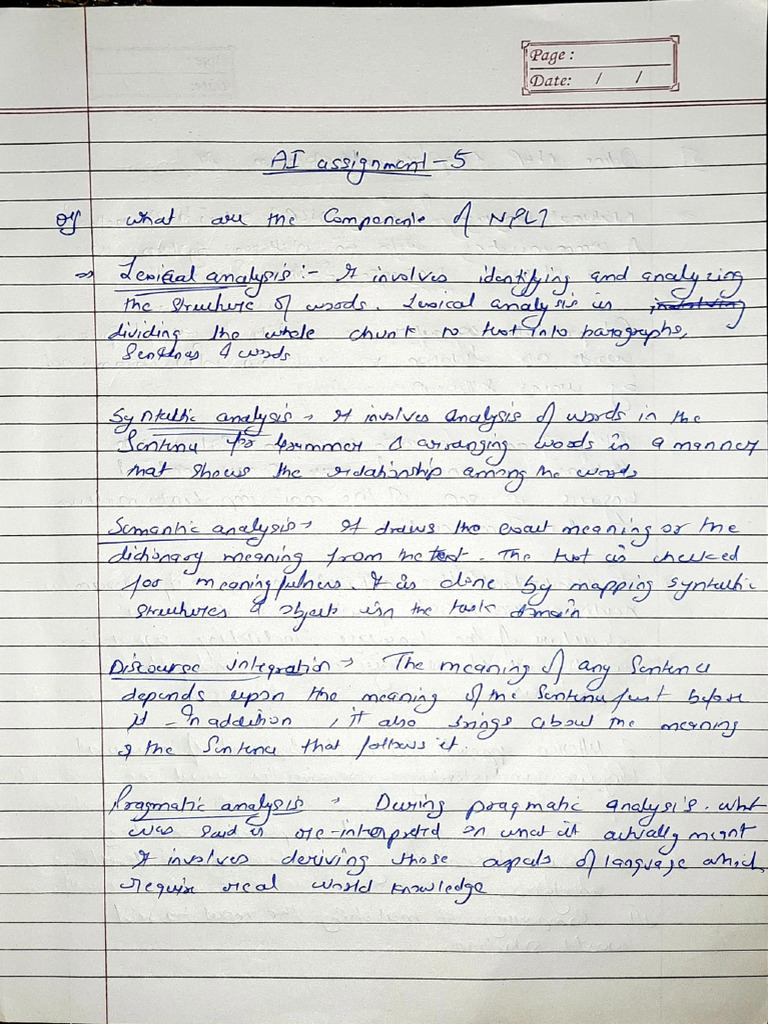 Page :
Date: / /
AI assignment - 5
Q1 what are the Components of NPL?
⇒ Lexical analysis :- It involves identifying and analyzing
the structure of words. Lexical analysis is involving
dividing the whole chunk to text into paragraphs,
Sentenas & words
Syntactic analysis → It involves analysis of words in the
Sentence for Grammer & arranging words in a manner
that shows the relationship among the words
Semantic analysis → It draws the exact meaning or the
dictionary meaning from the text. The text is checked
for meaningfulness. It is done by mapping syntactic
structures & objects in the task domain
Discourse integration → The meaning of any Sentence
depends upon the meaning of the Sentence just before
it - In addition , it also brings about the meaning
of the Sentence that follows it.
Pragmatic analysis → During pragmatic analysis. what
was said is re-interpreted on what it actually meant
It involves deriving those aspects of language which
require real world knowledge